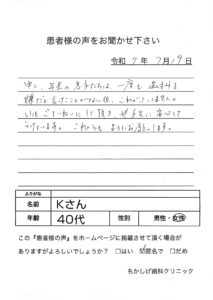 患者様の声をお聞かせ下さい
令和 7 年 7月19日
中二、年長の息子たちは、一度も歯医者を
嫌だと言ったことがない位、こわがっていません。
いつもていねいにして頂き、
これからもよろしくお願いします。
ふりがな
名前 Kさん
年齢 40代 性別 男性・女性
この『患者様の声』をホームページに掲載させて頂く場合が
ありますがよろしいでしょうか? □はい ☑匿名で □だめ
ちかしげ歯科クリニック